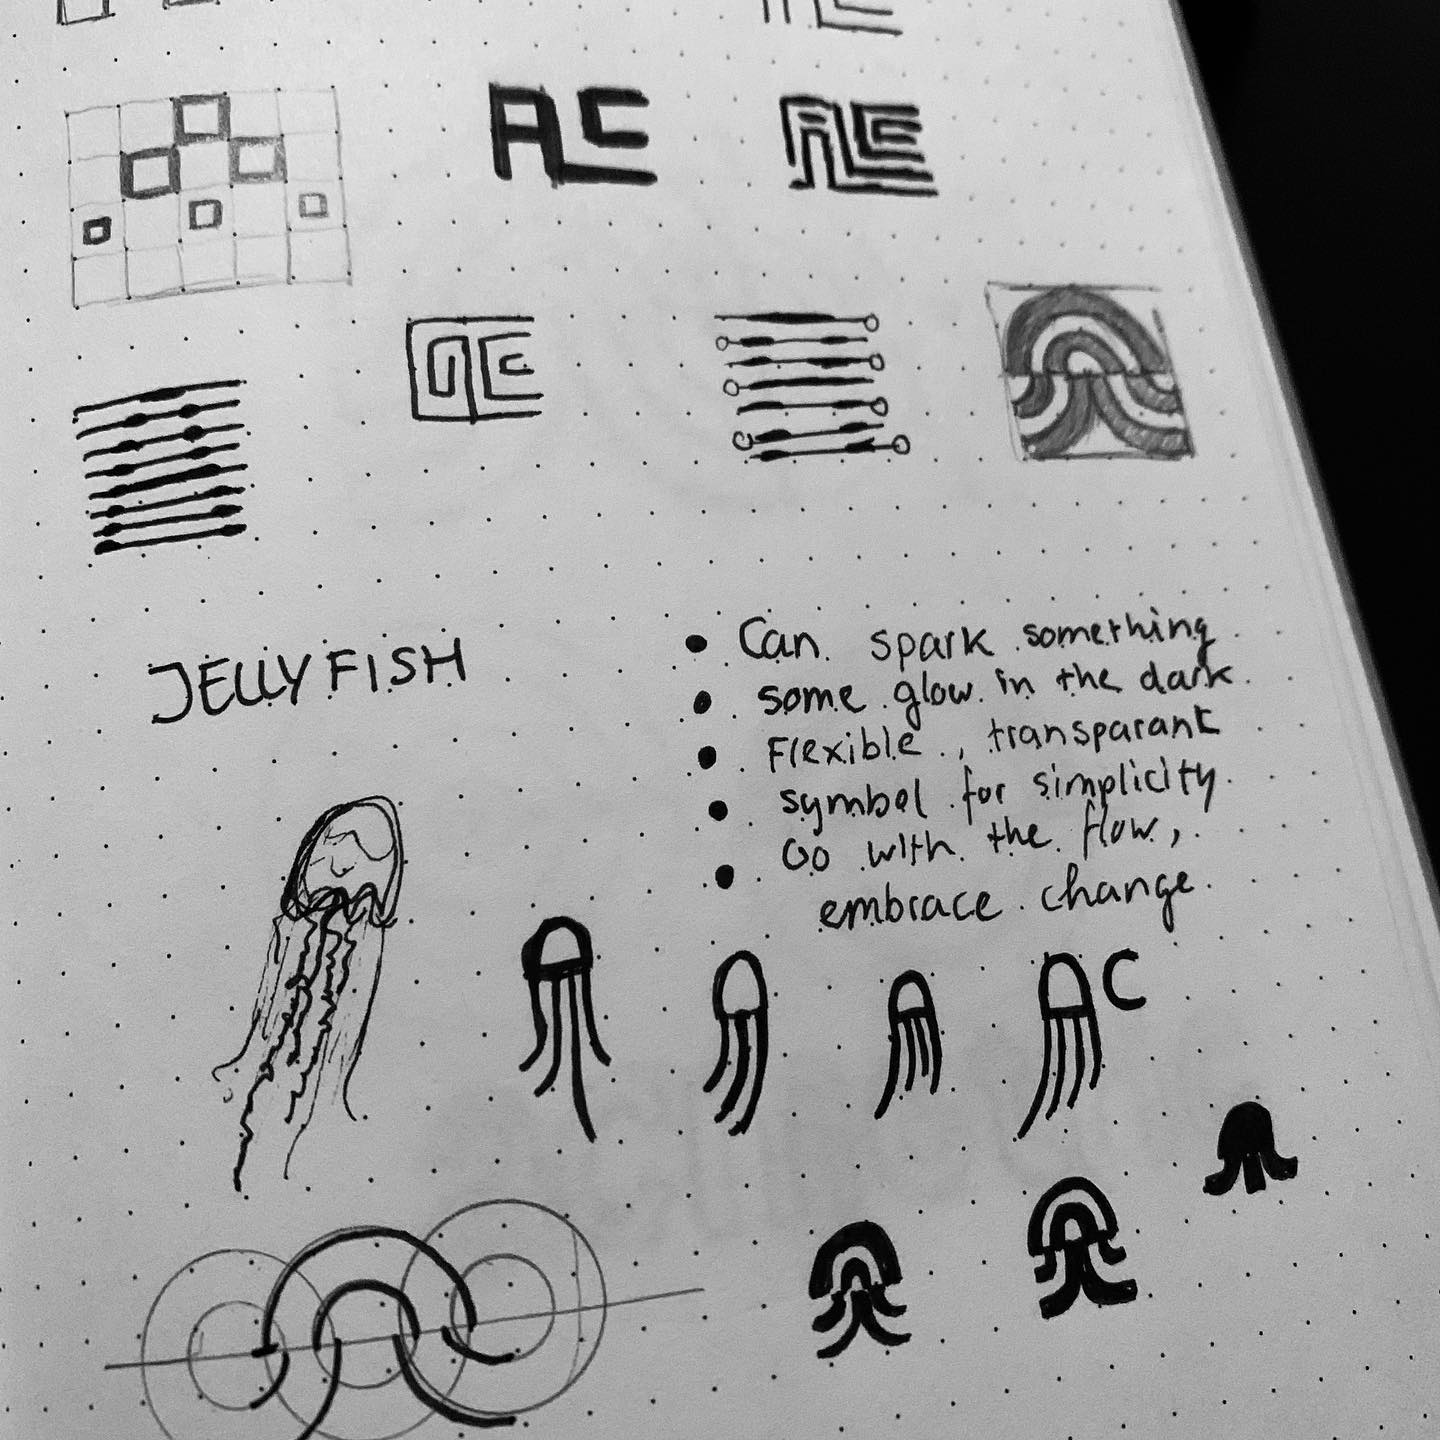 AC
AC
AC
JELLYFISH
• Can spark something
• some glow in the dark
• Flexible, transparant
• symbol for simplicity
• Go with the flow,
embrace change
C